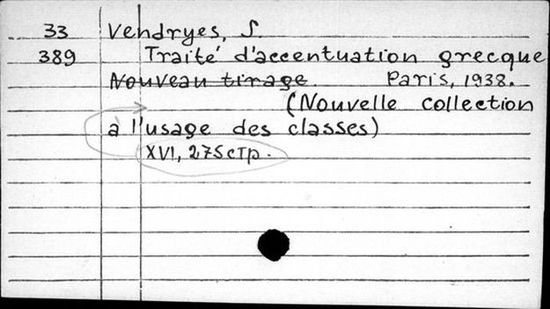 33 Vendryes, J.
389 Traité d'accentuation grecque
Nouveau tirage Paris, 1938.
(Nouvelle collection
à l'usage des classes)
XVI, 275 стр.